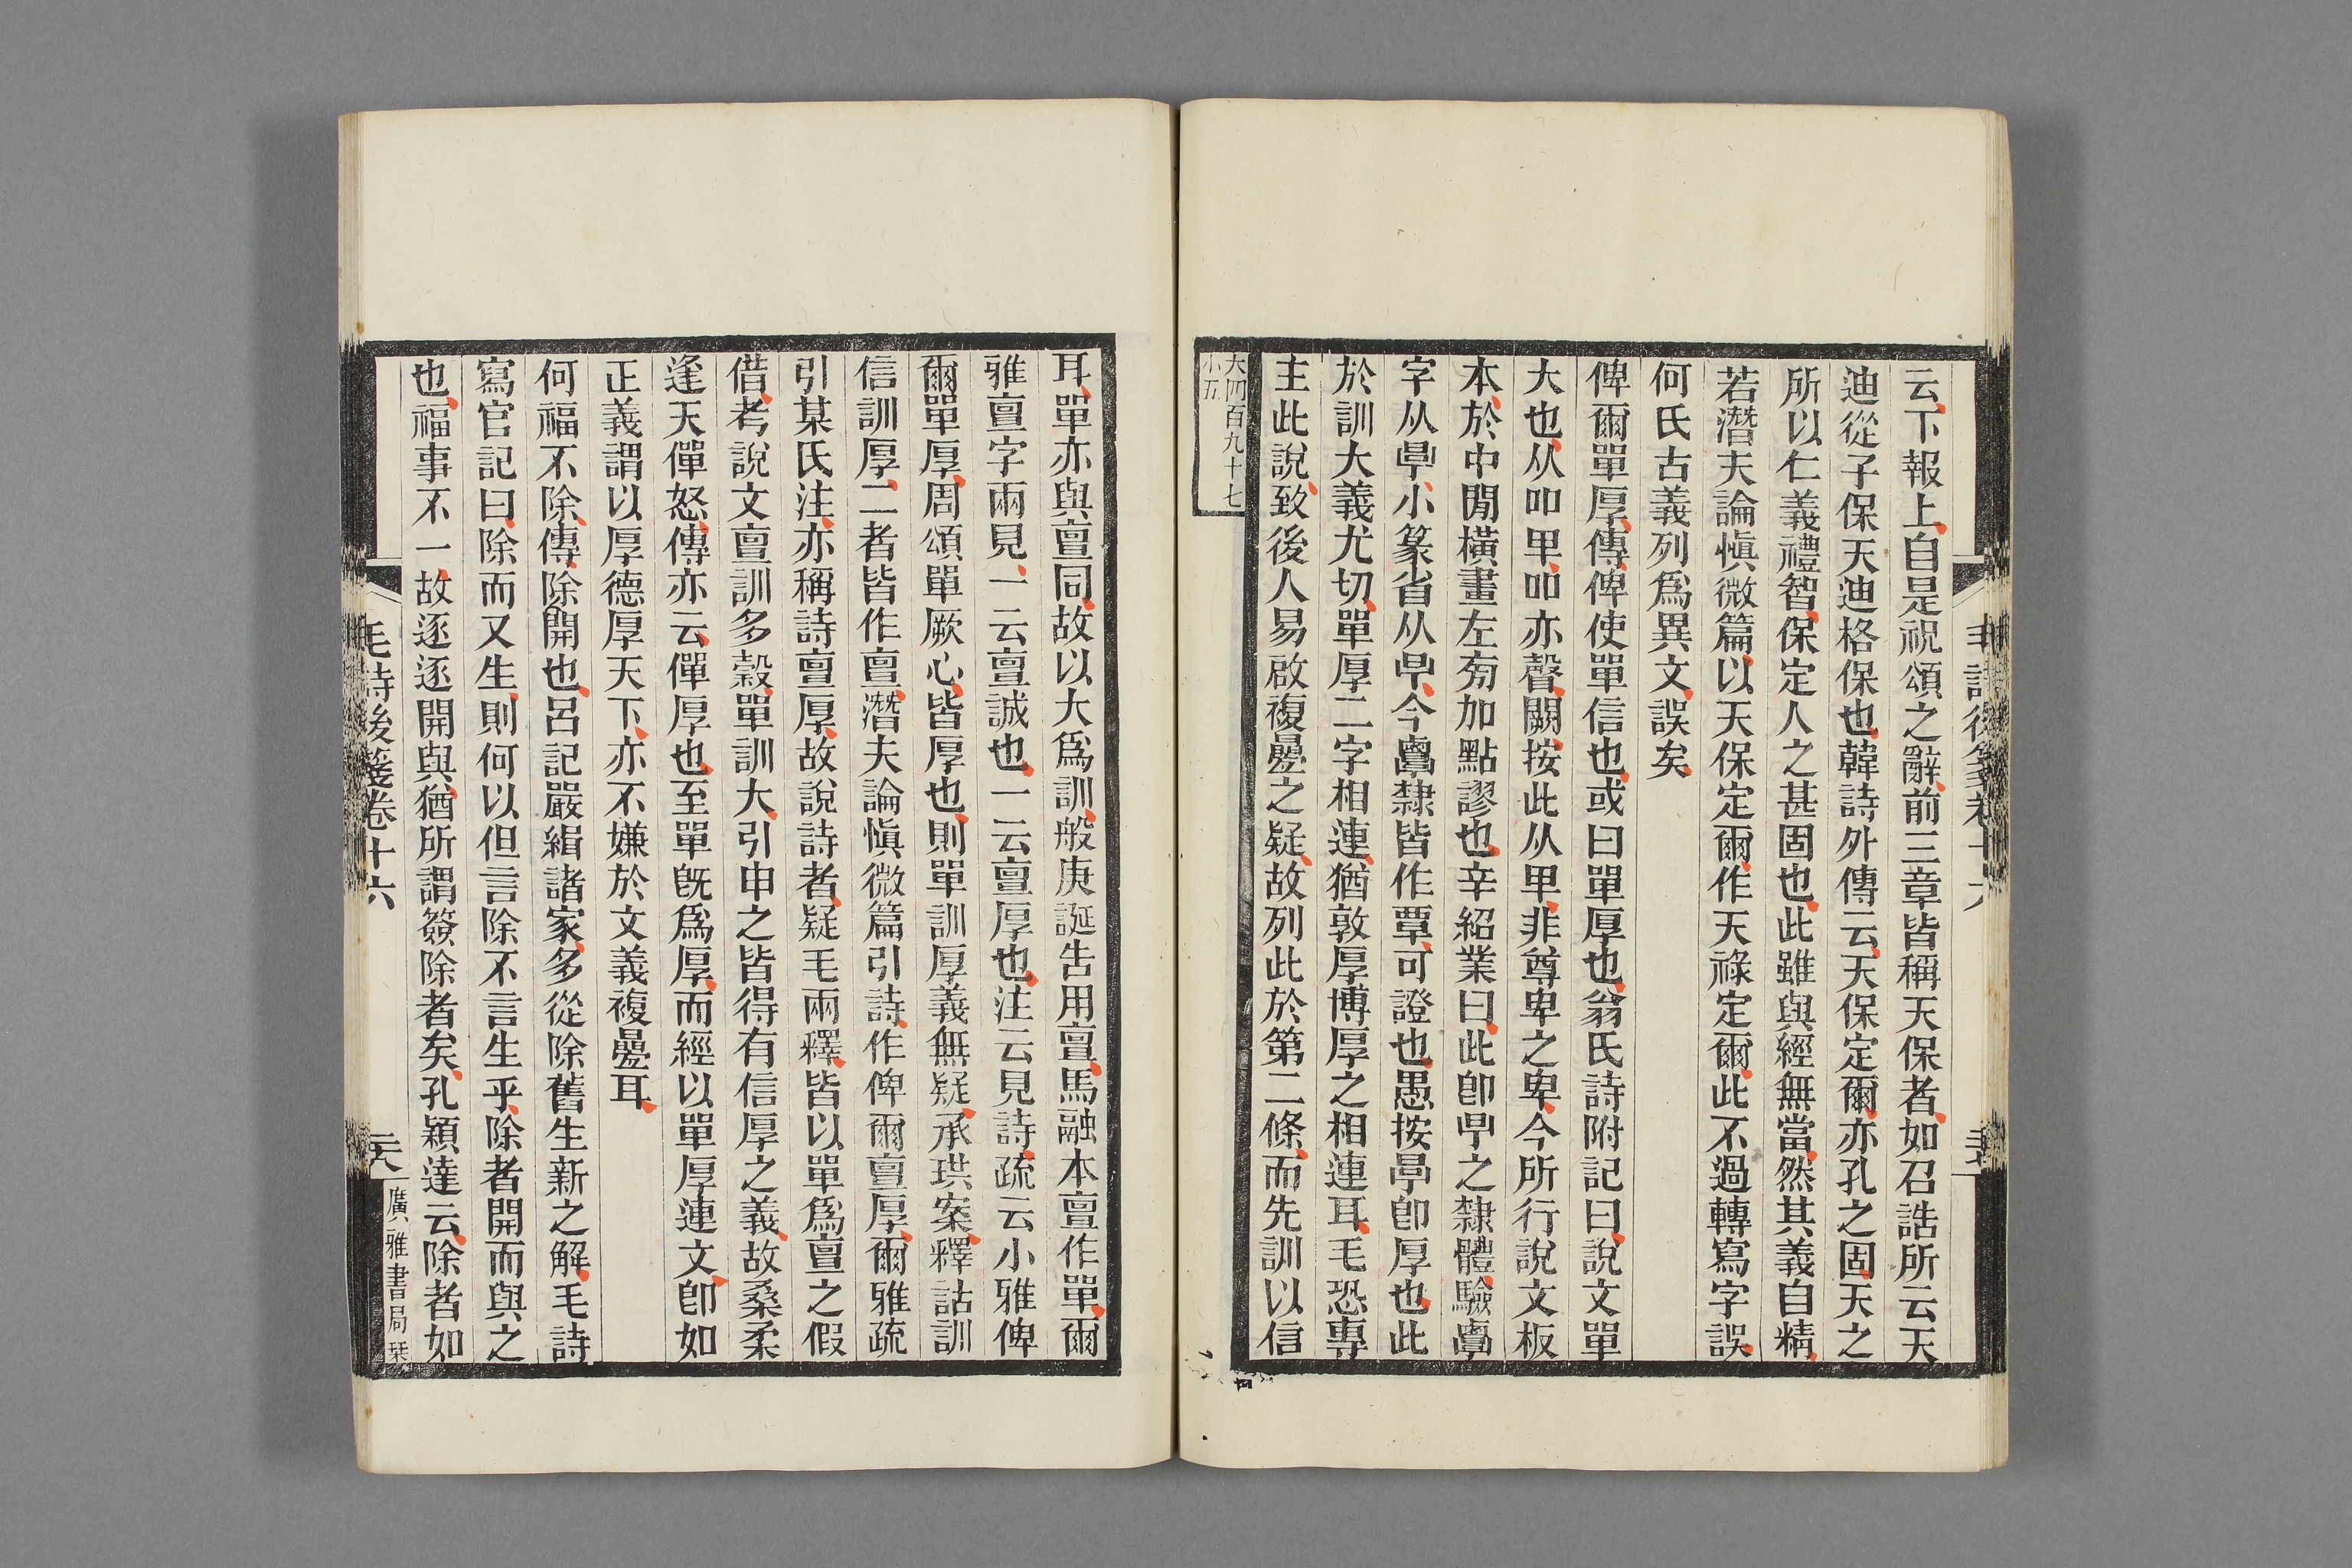 云下報上自是祝頌之辭前三章皆稱天保者如召誥所云天
迪從子保天迪格保也韓詩外傳云天保定爾亦孔之固天之
所以仁義禮智保定人之甚固也此雖與經無當然其義自精
若潛夫論愼微篇以天保定爾作天祿定爾此不過轉寫字誤
何氏古義列爲異文誤矣
俾爾單厚傳俾使單信也或曰單厚也翁氏詩附記曰說文單
大也从吅甲吅亦聲闕按此从甲非尊卑之卑今所行說文板
本於中閒橫畫左㫄加點謬也辛紹業曰此卽𠧢之隸體驗𪉷
字从㫗小篆省从𠧢今𪉷隸皆作覃可證也愚按㫗卽厚也此
於訓大義尤切單厚二字相連猶敦厚博厚之相連耳毛恐專
主此說致後人易啟複疊之疑故列此於第二條而先訓以信
大四百九十七
小五
耳單亦與亶同故以大爲訓般庚誕告用亶馬融本亶作單爾
雅亶字兩見一云亶誠也一云亶厚也注云見詩疏云小雅俾
爾單厚周頌單厥心皆厚也則單訓厚義無疑承珙案釋詁訓
信訓厚二者皆作亶潛夫論愼微篇引詩作俾爾亶厚爾雅疏
引某氏注亦稱詩亶厚故說詩者疑毛兩釋皆以單爲亶之假
借考說文亶訓多穀單訓大引申之皆得有信厚之義故桑柔
逢天僤怒傳亦云僤厚也至單旣爲厚而經以單厚連文卽如
正義謂以厚德厚天下亦不嫌於文義複疊耳
何福不除傳除開也呂記嚴緝諸家多從除舊生新之解毛詩
寫官記曰除而又生則何以但言除不言生乎除者開而與之
也福事不一故逐逐開與猶所謂簽除者矣孔穎達云除者如
毛詩後箋卷十六
廣雅書局栞